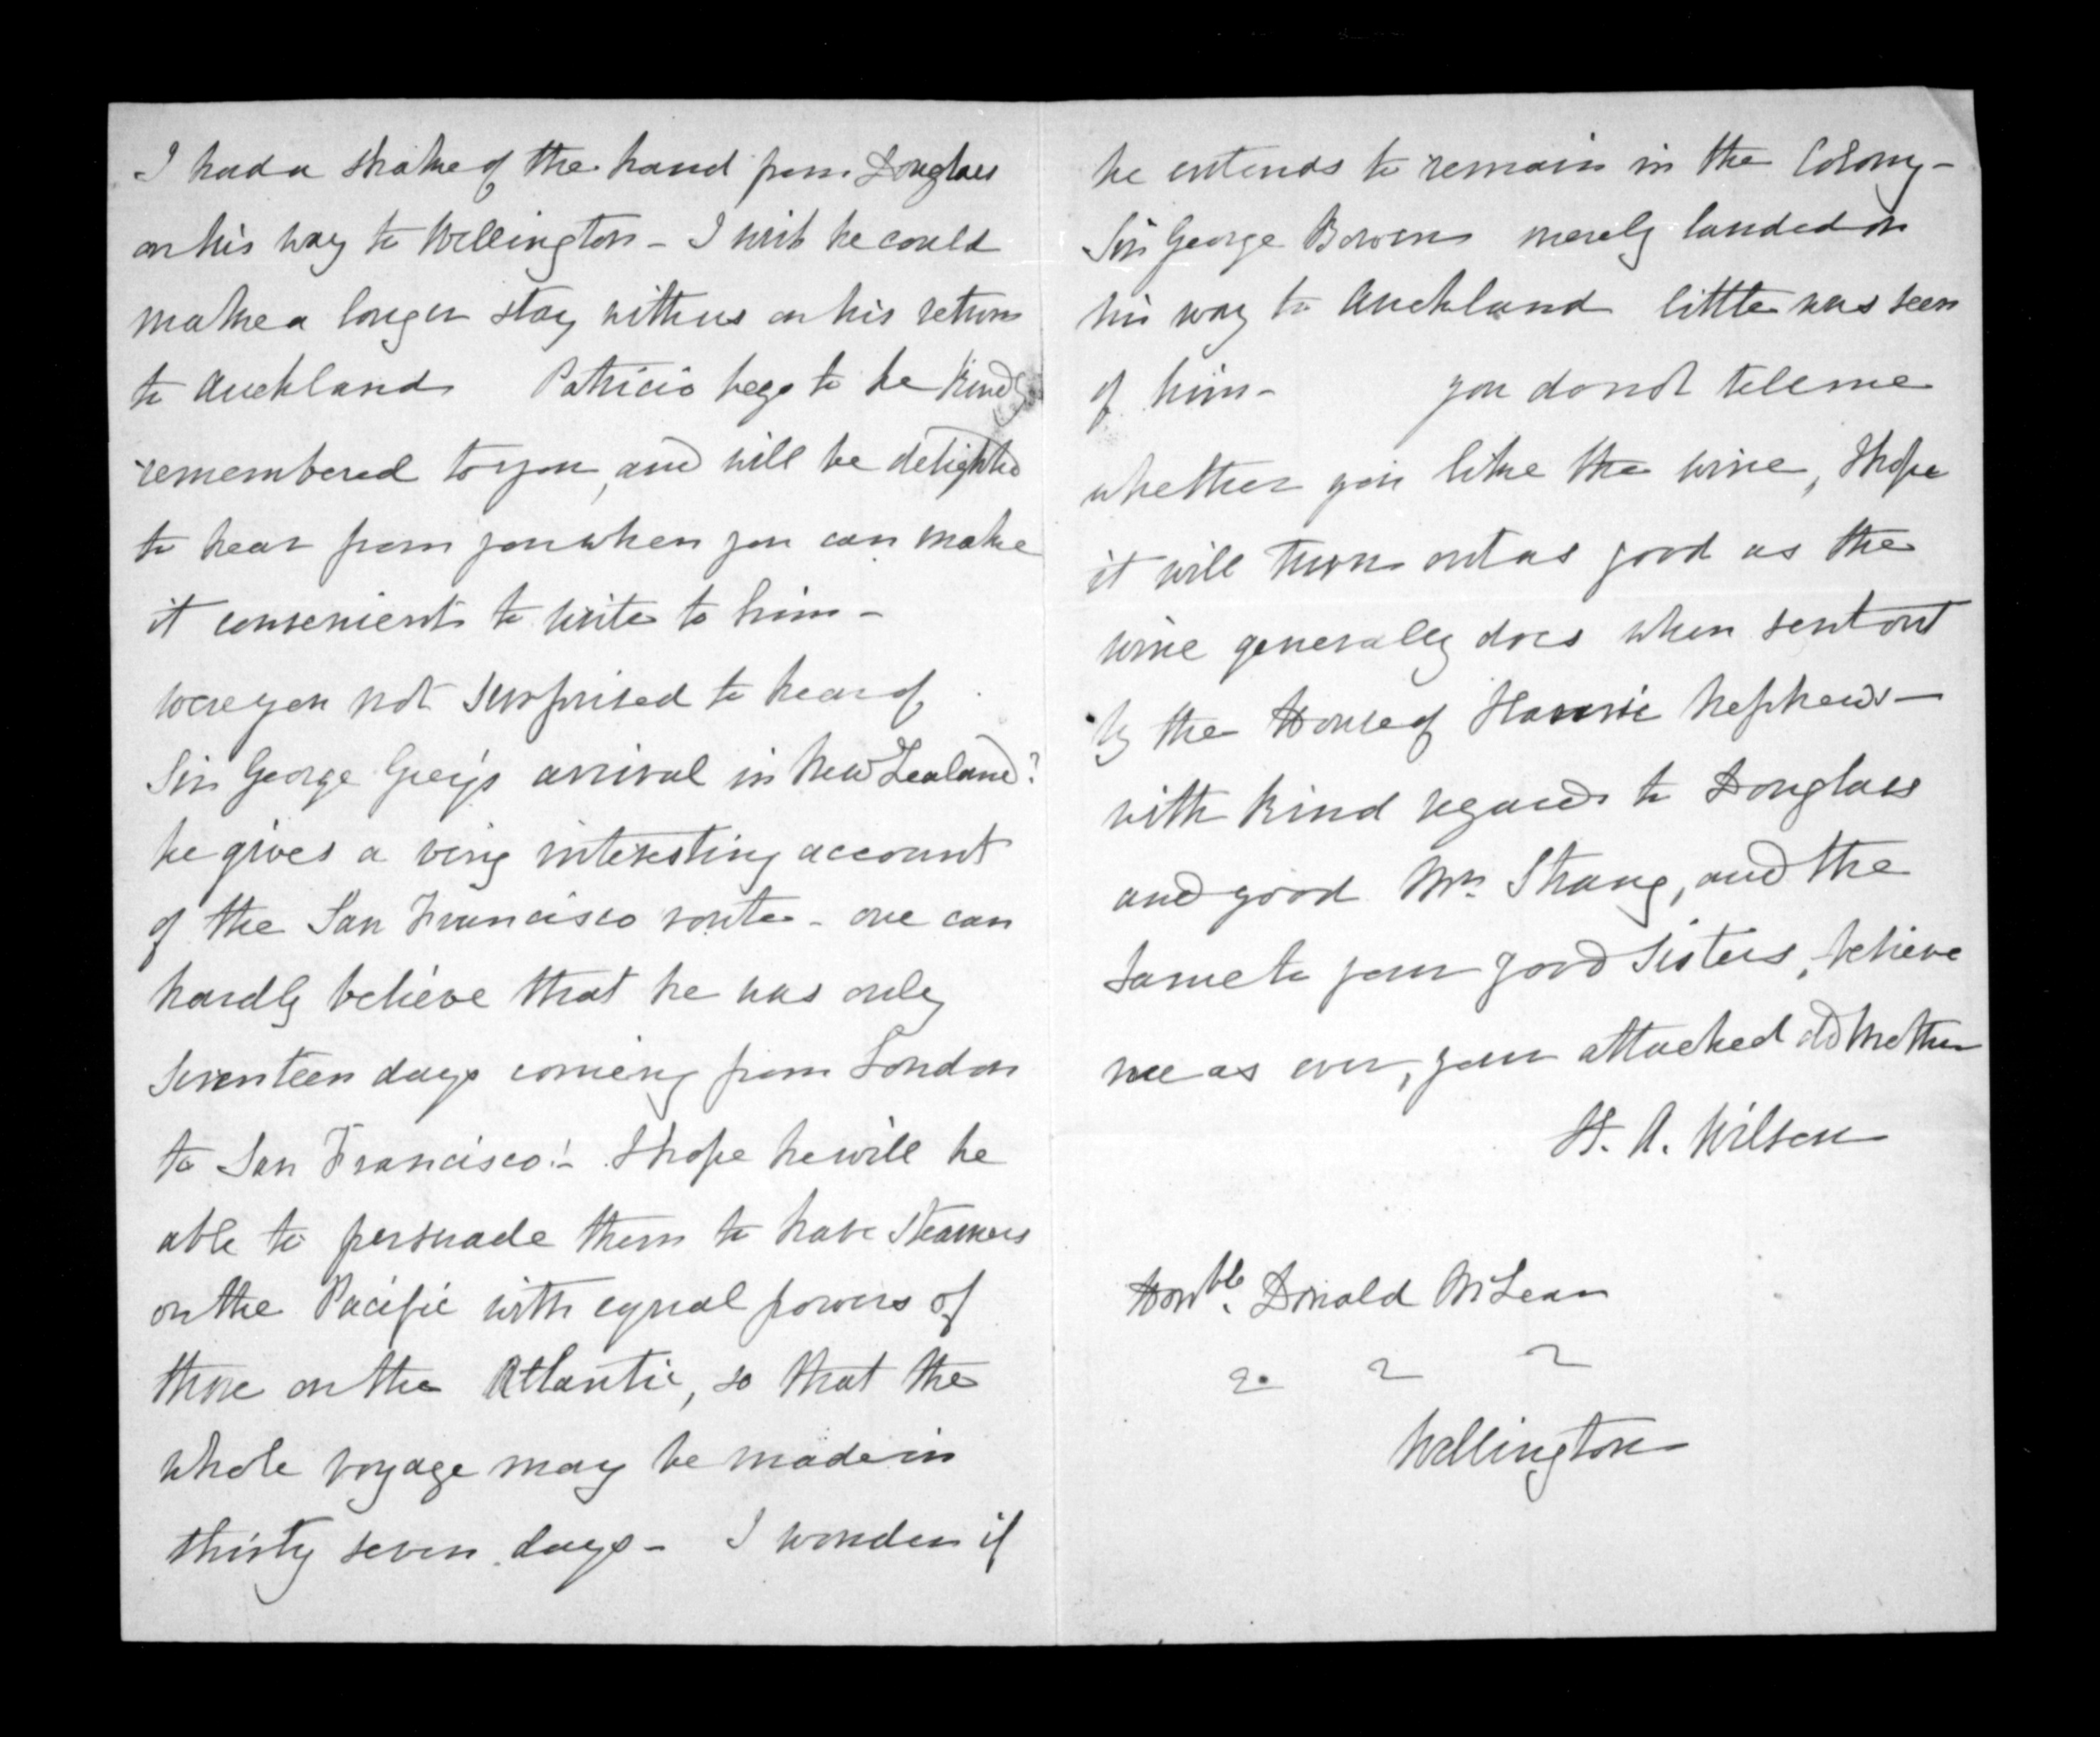 I had a shake of the hand from Douglass
on his way to Wellington - I wish he could
make a longer stay with us on his return
to Auckland Patricio begs to be kindly
remembered to you, and will be delighted
to hear from you when you can make
it convenient to write to him -
were you not surprised to hear of
Sir George Grey's arrival in New Zealand?
he gives a very interesting account
of the San Francisco route - one can
hardly believe that he was only
seventeen days coming from London
to San Francisco! - I hope he will be
able to persuade them to have steamers
on the Pacific with equal powers of
those on the Atlantic, so that the
whole voyage may be made in
thirty seven days - I wonder if
he entends to remain in the Colony -
Sir George Bowen merely landed on
his way to Auckland little was seen
of him - you do not tell me
whether you like the wine, I hope
it will turn out as good as the
wine generally does when sent out
by the House of Nephews -
with kind regards to Douglass
and good Mrs. Strang, and the
same to your good Sisters, believe
me as ever, your attached old Mother
H. A. Wilson
Honble. Donald McLean
Wellington